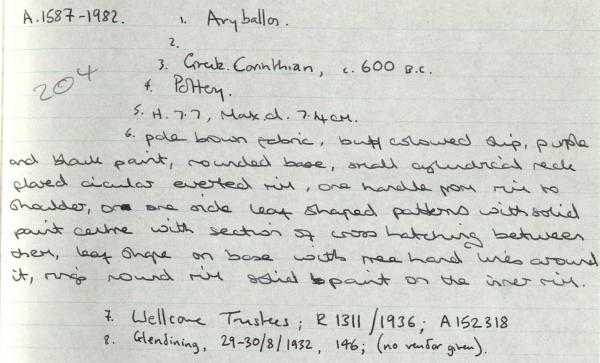 A.1587-1982. 1. Aryballos.
2.
204
3. Greek. Corinthian, c. 600 B.C.
4. Pottery.
5. H. 7.7, Max. d. 7.4 cm.
6. pale brown fabric, buff coloured slip, purple
and black paint, rounded base, small cylindrical neck
flared circular everted rim, one handle from rim to
shoulder, on one side leaf shaped patterns with solid
paint centre with section of cross hatching between
them, leaf shape on base with free hand lines around
it, rings round rim solid paint on the inner rim.
7. Wellcome Trustees; R 1311/1936; A152318
8. Glendining, 29-30/8/1932, 146; (no vendor given).